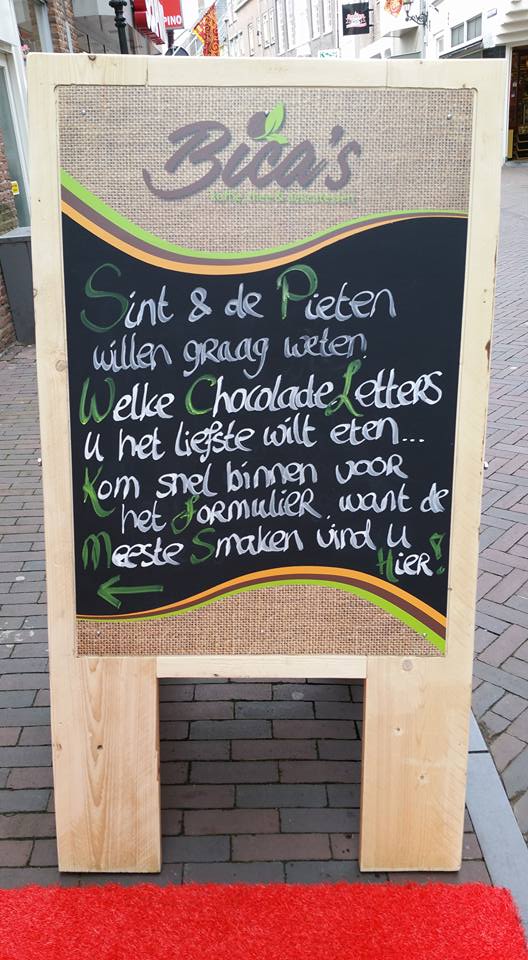 PINO
Bica's
koffie, thee & delicatessen
Sint & de Pieten
willen graag weten
Welke Chocolade Letters
u het liefste wilt eten...
Kom snel binnen voor
het Formulier, want de
Meeste Smaken vind u
Hier!